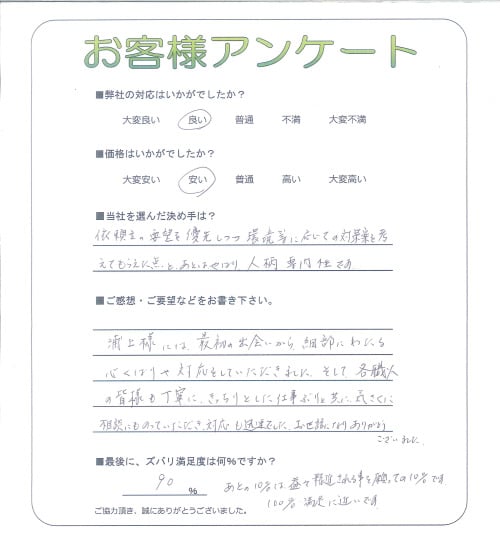 お客様アンケート
■弊社の対応はいかがでしたか？
大変良い 良い 普通 不満 大変不満
■価格はいかがでしたか？
大変安い 安い 普通 高い 大変高い
■当社を選んだ決め手は？
依頼主の要望を優先しつつ環境等に応じての対策案を考
えてもらえた点と、あとはやはり人柄 専門性です
■ご感想・ご要望などをお書き下さい。
浦上様には、最初の出会いから、細部にわたる
心くばりや対応をしていただきました。そして、各職人
の皆様も丁寧に、きっちりとした仕事ぶりと共に、気さくに
相談にものっていただき、対応も迅速でした。お世話になりありがとう
ございました
■最後に、ズバリ満足度は何%ですか？
90 %
あとの10%は益々精進される事を願っての10%です
100% 満足に近いです
ご協力頂き、誠にありがとうございました。